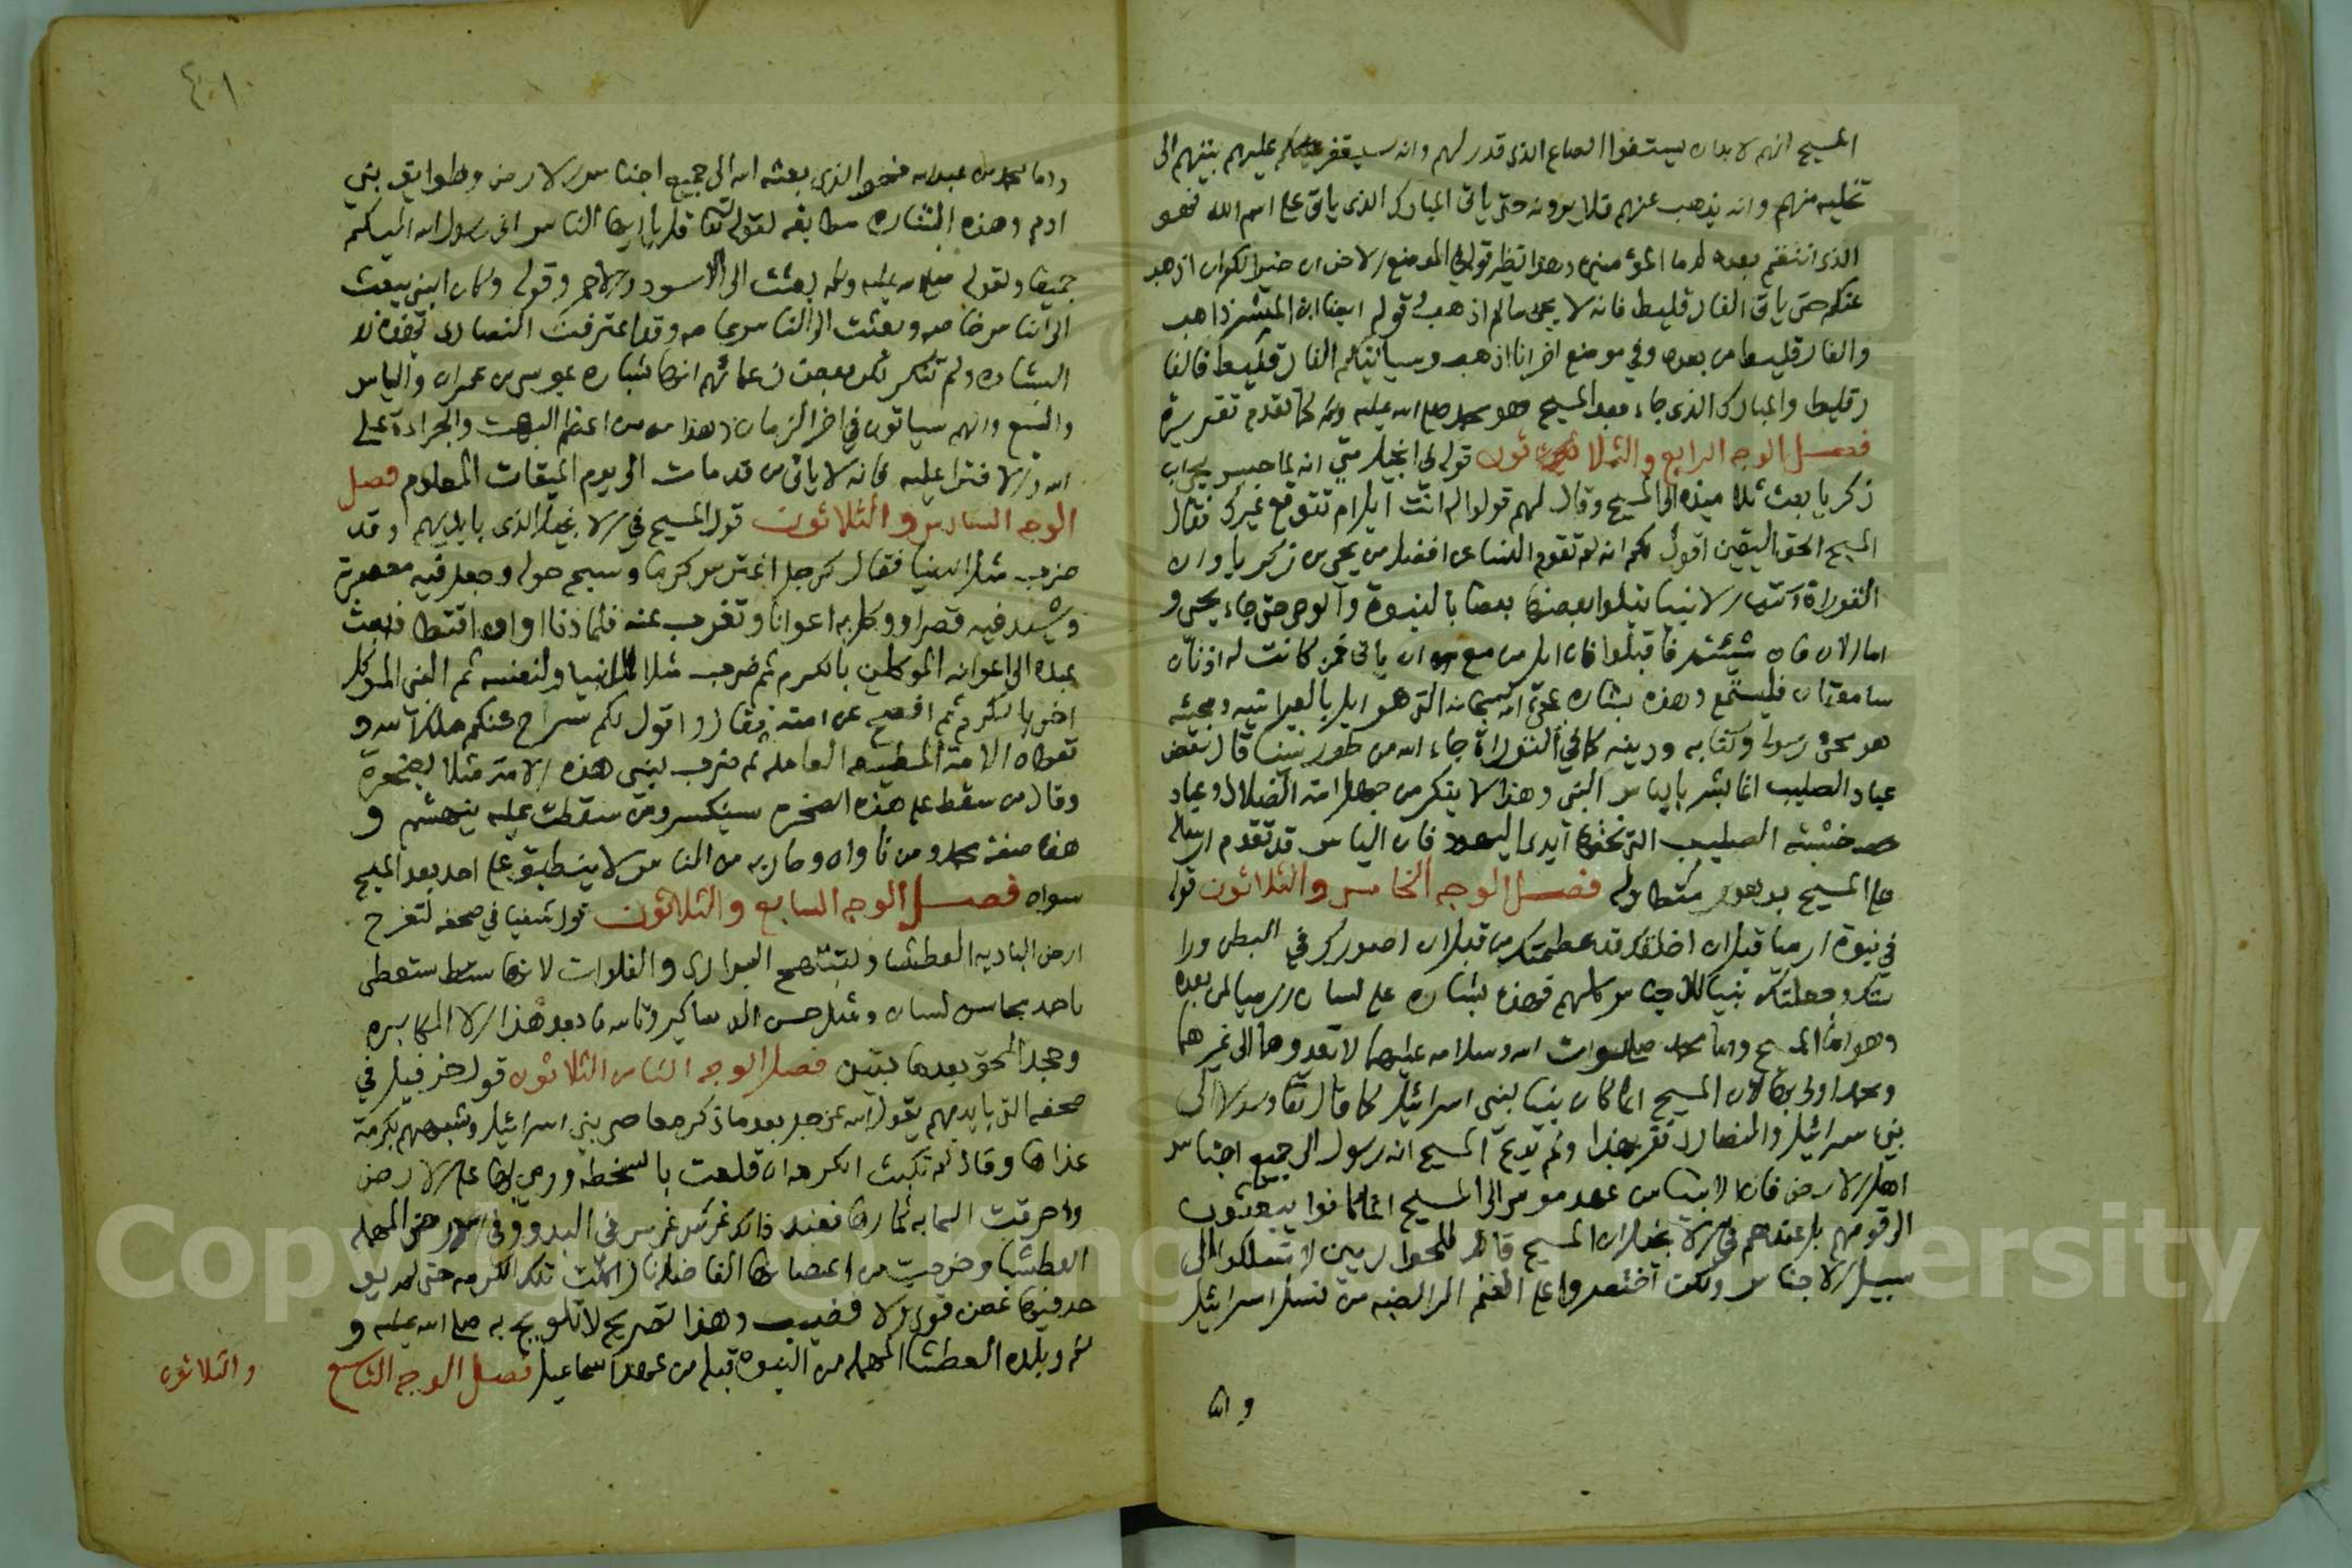 المسيح انهم لا بد ان يستوفوا الصاع الذي قدر لهم وانه سيقفر عليهم بيتهم الى
تخليه منهم وانه يذهب عنهم فلا يرونه حتى ياتي المبارك الذي ياتي على اسم الله فهو
الذي انتقم بعده لدما المؤمنين وهذا نظير قوله في الموضع الاخر ان خيرا لكم ان اذهب
عنكم حتى ياتي الفارقليط فانه لا يجي ما لم اذهب وقوله ايضا ابن البشر ذاهب
والفارقليط من بعده وفي موضع اخر انا اذهب وسياتيكم الفارقليط فالفا
رقليط والمبارك الذي جاء بعد المسيح هو محمد صلى الله عليه وسلم كما تقدم تقريره
فصل الوجه الرابع والثلاثون قوله في انجيل متى انه لما حبس يحيى بن
زكريا بعث تلاميذه الى المسيح وقال لهم قولوا له انت ايل ام نتوقع غيرك فقال
المسيح الحق اليقين اقول لكم انه لم تقم النسا عن افضل من يحيى بن زكريا وان
التوراة وكتب الانبيا يتلوا بعضها بعضا بالنبوة والوحي حتى جاء يحيى و
اما الان فان شئتم فاقبلوا فان ايل مزمع ان ياتي فمن كانت له اذنان
سامعتان فليستمع وهذه بشاره بمجئ الله سبحانه الذي هو ايل بالعبرانيه ومجيئه
هو مجئ رسوله وكتابه ودينه كما في التوراة جاء الله من طور سينا قال بعض
عباد الصليب انما بشر بالياس النبي وهذا لا ينكر من جهل امة الضلال وعباد
خشبة الصليب التي نحتها ايدي اليهود فان الياس قد تقدم ارساله
على المسيح بدهور متطاوله فصل الوجه الخامس والثلاثون قوله
في نبوة ارميا قبل ان اخلقك قد عظمتك من قبل ان اصورك في البطن وارا
سلتك وجعلتك نبيا للاجناس كلهم فهذه بشاره على لسان ارميا لمن بعده
وهو اما المسيح واما محمد صلوات الله وسلامه عليهما لا يعدوهما الى غيرهما
ومحمد اولى بها لان المسيح انما كان نبيا لبني اسرائيل كما قال تعا ورسولا الى
بني اسرائيل والنصارى تقر بهذا ولم يدع المسيح انه رسول الى جميع اجناس
اهل الارض فان الانبيا من عهد موسى الى المسيح انما كانوا يبعثون
الى قومهم بل عندهم في الانجيل ان المسيح قال للحواريين لا تسلكوا الى
سبيل الاجناس ولكن اختصروا على الغنم الرابضه من نسل اسرائيل
واما
٤٠١
واما محمد بن عبد الله فهو الذي بعثه الله الى جميع اجناس الارض وطوايف بني
ادم وهذه البشاره مطابقه لقوله تعا قل يا ايها الناس اني رسول الله اليكم
جميعا ولقوله صلى الله عليه وسلم بعثت الى الاسود والاحمر وقوله وكان النبي يبعث
الى الناس خاصه وبعثت الى الناس عامه وقد اعترفت النصارى بهذه
البشاره ولم تنكر لكن بعض زعمائهم انها بشاره بموسى بن عمران والياس
واليسع وانهم سياتون في اخر الزمان وهذا من اعظم البهت والجراءة على
الله والافترا عليه فانه لا ياتي من قد مات الى يوم الميقات المعلوم فصل
الوجه السادس والثلاثون قول المسيح في الانجيل الذي بايديهم وقد
ضرب مثل الدنيا فقال كرجل اغترس كرما وسيج حوله وجعل فيه معصرة
وشيد فيه قصرا ووكل به اعوانا وتغرب عنه فلما دنا اوان اقتطافه بعث
عبده الى اعوانه الموكلين بالكرم ثم ضرب مثلا للانبيا ولنفسه ثم للنبي الموكل
اخرا بالكرم ثم افصح عن امته فقال واقول لكم سيزاح عنكم ملك الله و
تعطاه الامة المطيعه العامله ثم ضرب لنبي هذه الامة مثلا بصخرة
وقال من سقط على هذه الصخره سينكسر ومن سقطت عليه ينهشم و
هذه صفة محمد ومن ناواه وحاربه من الناس لا ينطبق على احد بعد المسيح
سواه فصل الوجه السابع والثلاثون قول شعيا في صحفه لتفرح
ارض الباديه العطشا ولتبتهج البراري والفلوات لانها ستعطى
باحمد محاسن لبنان ومثل حسن الدساكير وتالله ما بعد هذا الا المكابره
وجحد الحق بعدما تبين فصل الوجه الثامن الثلاثون قول حزقيل في
صحفه التي بايديهم يقول الله عز وجل بعد ما ذكر معاصي بني اسرائيل وشبههم بكرمة
غذاها وقال لم تلبث الكرمه ان قلعت بالسخطه ورمي بها على الارض
واحرقت السمايم ثمارها فعند ذلك غرس غرس في البدو وفي الارض المهمله
العطشا وخرجت من اغصانها الفاضله نار اكلت تلك الكرمه حتى لم يوجد
فيها غصن قوي ولا قضيب وهذا تصريح لا تلويح به صلى الله عليه و
سلم وبلده العطشا المهمله من النبوه قبله من عهد اسماعيل فصل الوجه التاسع
والثلاثون